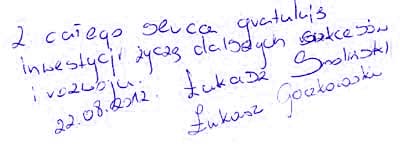 Z całego serca gratuluję
inwestycji życzę dalszych sukcesów
i rozwoju.
22.08.2012. Łukasz Smoliński
Łukasz Goczkowski